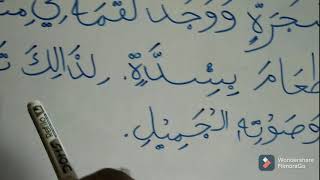 شَجَرَةٍ وَوَجَدَ لُقْمَةً فِي
طَعَامَ بِشِدَّةٍ. لِذَالِكَ
وَصَوْتِهِ الْجَمِيْلِ.
Wondershare
FilmoraGo